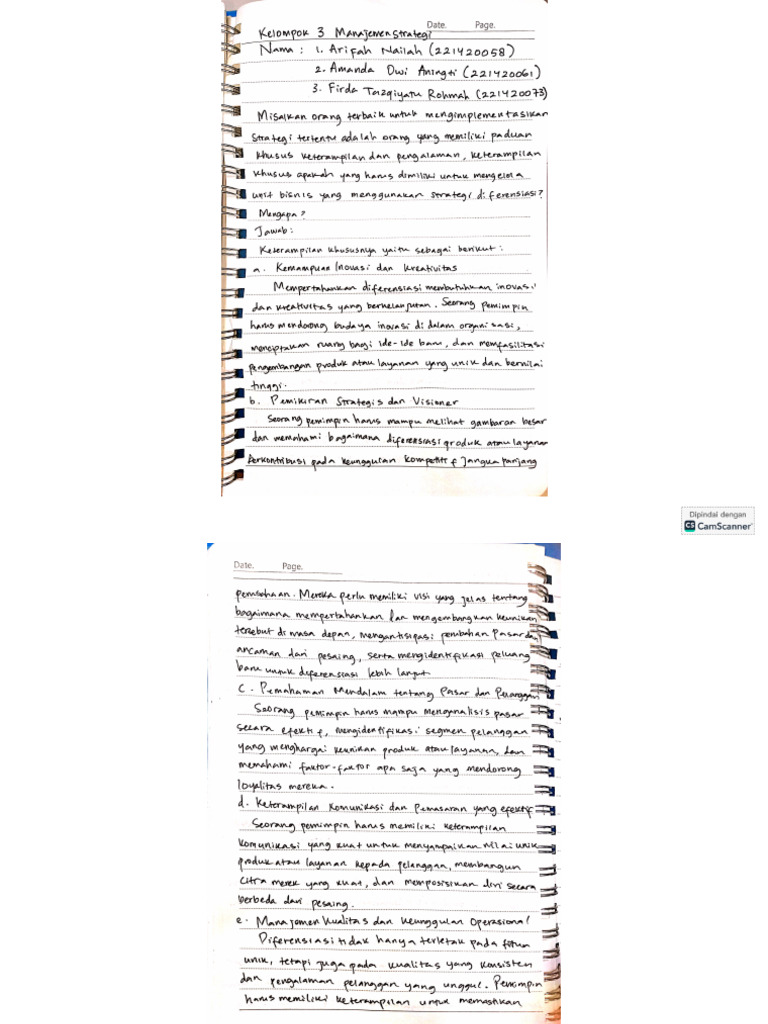 Date. Page.
Kelompok 3 Manajemen Strategi
Nama : 1. Arifah Nailah (221420058)
2. Amanda Dwi Aningti (221420061)
3. Firda Tazqiyatu Rohmah (221420073)
Misalkan orang terbaik untuk mengimplementasikan
strategi tertentu adalah orang yang memiliki paduan
khusus keterampilan dan pengalaman, keterampilan
khusus apakah yang harus dimiliki untuk mengelola
unit bisnis yang menggunakan strategi diferensiasi?
Mengapa?
Jawab:
Keterampilan khususnya yaitu sebagai berikut :
a. Kemampuan Inovasi dan kreativitas
Mempertahankan diferensiasi membutuhkan inovasi
dan kreativitas yang berkelanjutan. Seorang pemimpin
harus mendorong budaya inovasi di dalam organisasi,
menciptakan ruang bagi ide-ide baru, dan memfasilitasi
pengembangan produk atau layanan yang unik dan bernilai
tinggi.
b. Pemikiran Strategis dan Visioner
Seorang pemimpin harus mampu melihat gambaran besar
dan memahami bagaimana diferensiasi produk atau layanan
berkontribusi pada keunggulan kompetitif jangka panjang
Dipindai dengan
CS CamScanner
Date. Page.
perusahaan. Mereka perlu memiliki visi yang jelas tentang
bagaimana mempertahankan dan mengembangkan keunikan
tersebut di masa depan, mengantisipasi perubahan pasar
ancaman dari pesaing, serta mengidentifikasi peluang
baru untuk diferensiasi lebih lanjut
c. Pemahaman Mendalam tentang Pasar dan Pelanggan
Seorang pemimpin harus mampu menganalisis pasar
secara efektif, mengidentifikasi segmen pelanggan
yang menghargai keunikan produk atau layanan, dan
memahami faktor-faktor apa saja yang mendorong
loyalitas mereka.
d. Keterampilan Komunikasi dan Pemasaran yang efektif
Seorang pemimpin harus memiliki keterampilan
komunikasi yang kuat untuk menyampaikan nilai unik
produk atau layanan kepada pelanggan, membangun
citra merek yang kuat, dan memposisikan diri secara
berbeda dari pesaing.
e. Manajemen Kualitas dan Keunggulan Operasional
Diferensiasi tidak hanya terletak pada fitur
unik, tetapi juga pada kualitas yang konsisten
dan pengalaman pelanggan yang unggul. Pemimpin
harus memiliki keterampilan untuk memastikan